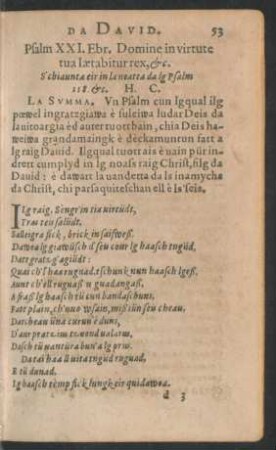 DA DAVID. 53
Psalm XXI. Ebr. Domine in virtute
tua lætabitur rex, &c.
S'chiaunta eir in la noatta da lg Psalm
118. &c. H. C.
LA SVMMA. Vn Psalm cun lgqual ilg
pœvel ingratzgiawa è suleiwa ludar Deis da
la uitoargia èd auter tuotthain, chia Deis ha-
weiwa grandamaingk è deckamuntun fatt a
lg raig Dauid. Ilgqual tuot ais è uain pür in-
drett cumplyd in lg noass raig Christ, filg da
Dauid: è dawart la uandetta da ls inamychs
da Christ, chi parsaquiteschan ell è la 'seis.
ILg raig, Sèngr in tia uirtüdt,
Tras teis salüdt,
Salleigra fick, brick in saisweß.
Dawoa lg giawüsch d'seu cour lg haasch tngüd,
Datt gratz, g'agiüdt:
Quai ch'l haa rugnad, tschunck nun haasch lgeß,
Aunt ch'ell rugnaß n guadangaß,
A fraß lg haasch tü cun bandaschuns,
Fatt plain, ch'uuo wsain, miß sün seu cheau,
Datcheau üna curun'è duns,
D'aur pratzius tomond ualoens,
Dasch tü uantüra bun'a lg prus.
Da tai haa ll uita tngud rugnad,
E tü dunad.
Lg haasch tèmp fick lungk eir quid awea.
d 3